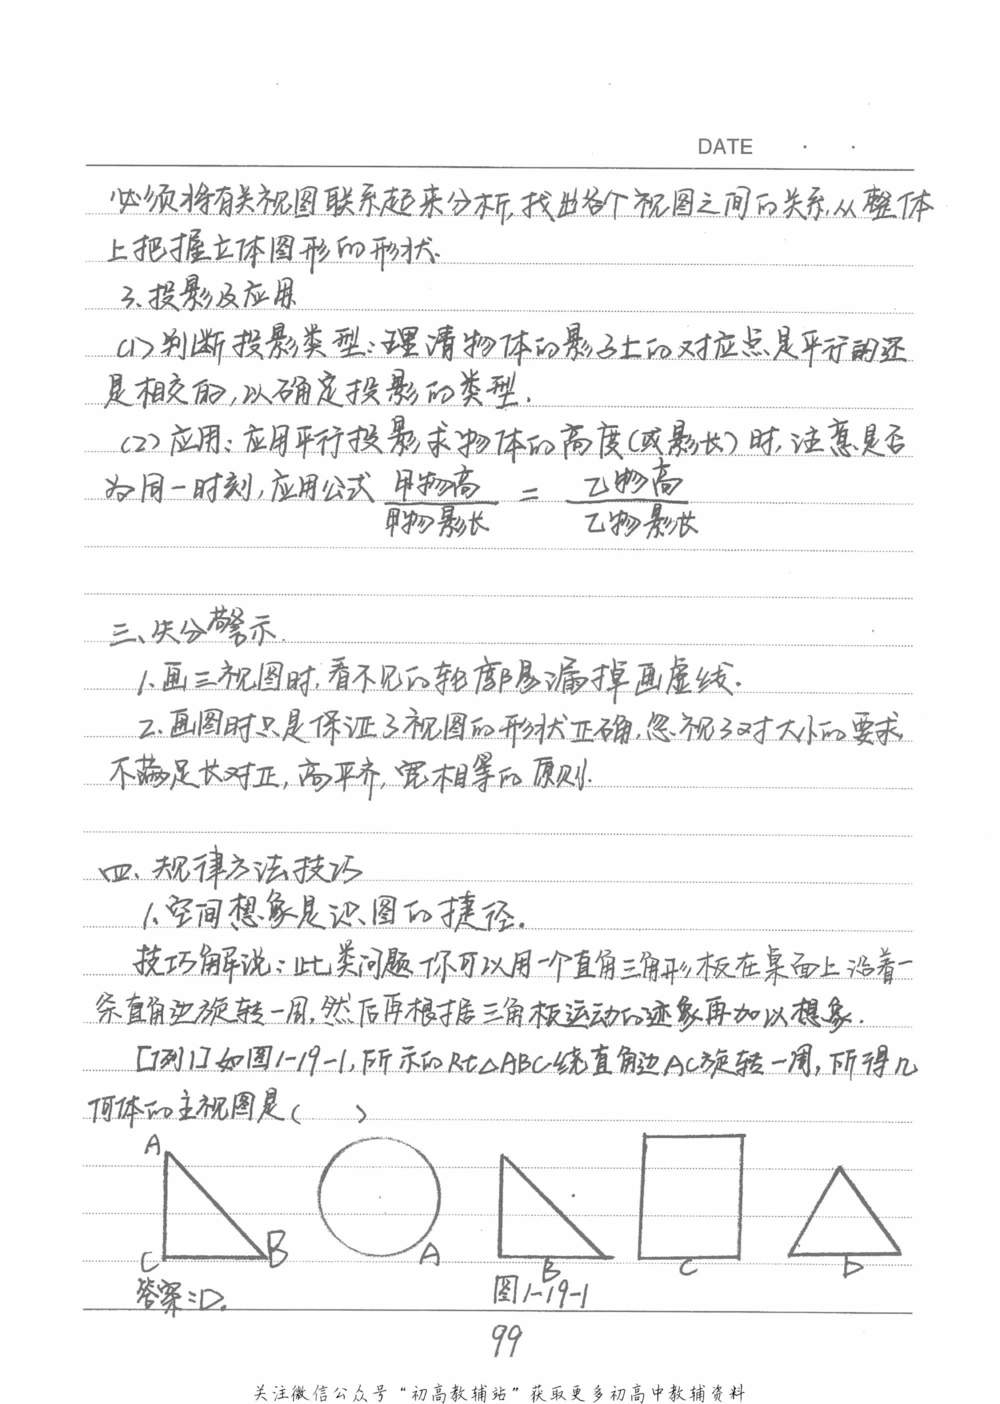 DATE · ·
必须将有关视图联系起来分析,找出各个视图之间的关系,从整体
上把握立体图形的形状.
3、投影及应用
(1)判断投影类型:理清物体的影子上的对应点是平行的还
是相交的,以确定投影的类型.
(2)应用:应用平行投影求物体的高度(或影长)时,注意是否
为同一时刻,应用公式 甲物高/甲物影长 = 乙物高/乙物影长
三、失分警示.
1.画三视图时,看不见的轮廓易漏掉画虚线.
2.画图时只是保证了视图的形状正确,忽视了对大小的要求,
不满足长对正,高平齐,宽相等的原则.
四、规律方法技巧
1、空间想象是识图的捷径.
技巧解说:此类问题你可以用一个直角三角形板在桌面上沿着一
条直角边旋转一周,然后再根据三角板运动的迹象再加以想象.
[例1]如图1-19-1,所示的Rt△ABC绕直角边AC旋转一周,所得几
何体的主视图是( )
A
C B A B C D
答案:D. 图1-19-1
99
关注微信公众号“初高教辅站”获取更多初高中教辅资料